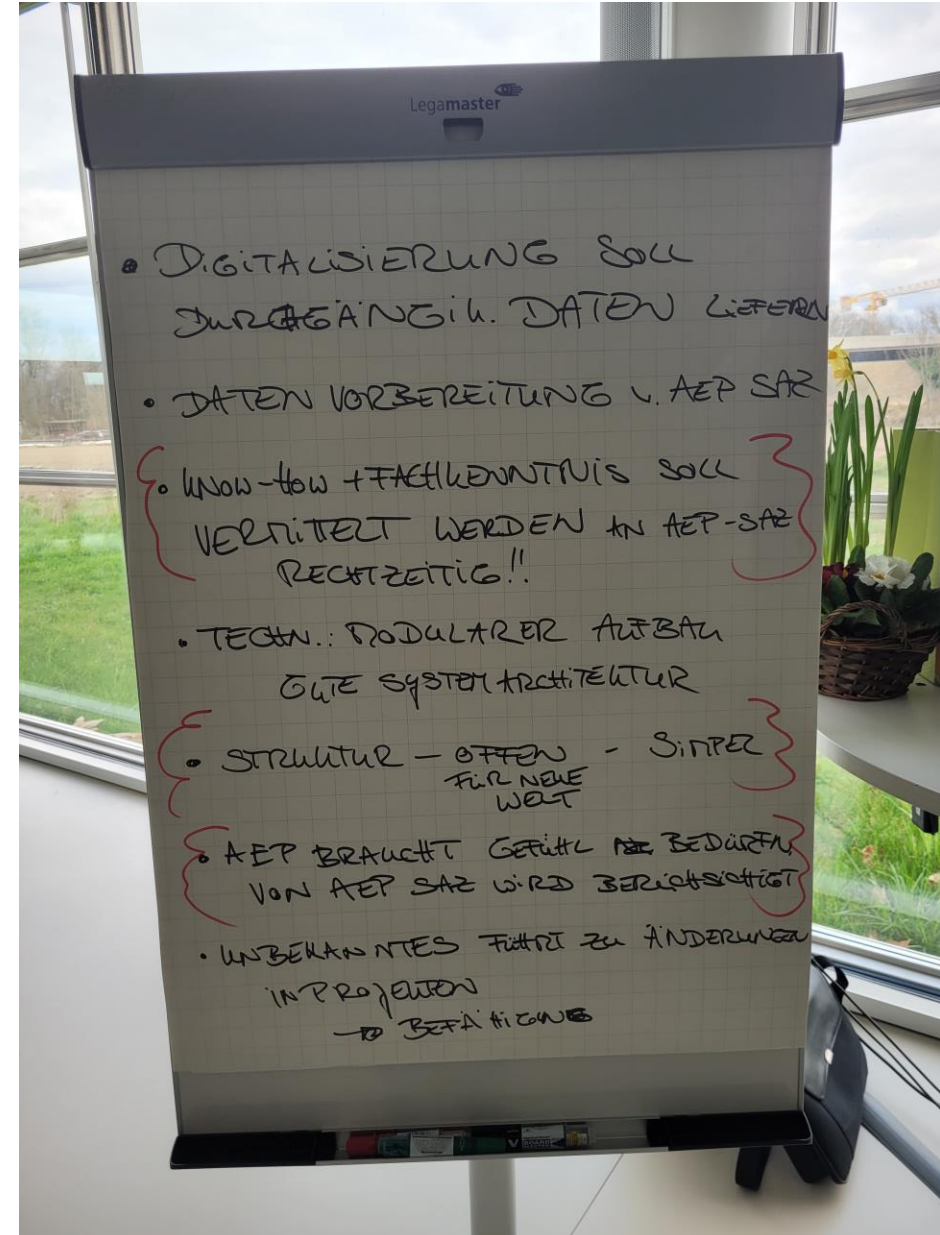 Legamaster
• DIGITALISIERUNG SOLL
DURCHGÄNGIK. DATEN LIEFERN
• DATEN VORBEREITUNG v. AEP SAZ
• KNOW-HOW + FACHKENNTNIS SOLL
VERMITTELT WERDEN AN AEP-SAZ
RECHTZEITIG!!
• TECHN.: MODULARER AUFBAU
GUTE SYSTEMARCHITEKTUR
• STRUKTUR – OFFEN – SIMPEL
FÜR NEUE
WELT
• AEP BRAUCHT GEFÜHL BEDÜRFN.
VON AEP SAZ WIRD BERÜCHSICHTIGT
• UNBEKANNTES FÜHRT ZU ÄNDERUNGEN
IN PROJEKTEN
→ BEFÄHIGUNG